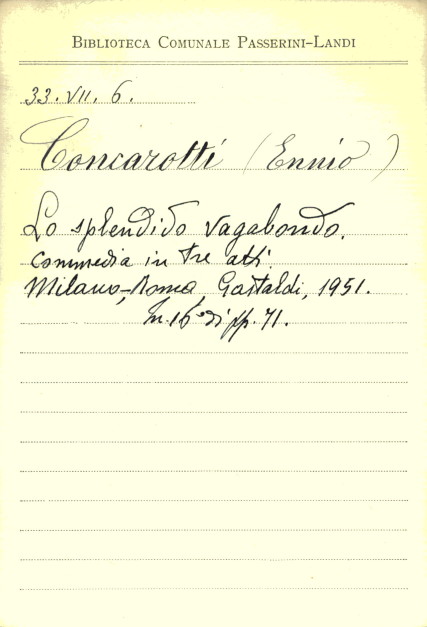 BIBLIOTECA COMUNALE PASSERINI-LANDI
33. VII. 6.
Concarotti (Ennio)
Lo splendido vagabondo.
Commedia in tre atti.
Milano, Roma, Gastaldi, 1951.
In 16° di pp. 71.